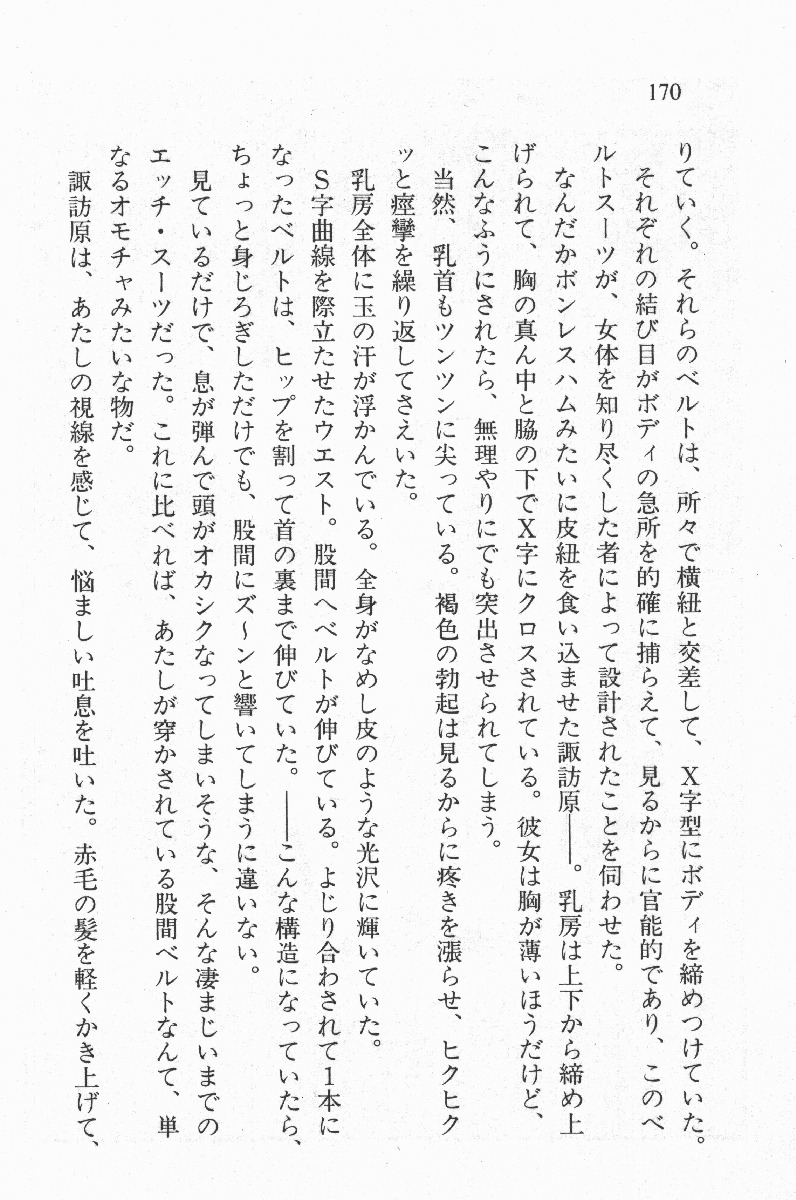 170
りていく。それらのベルトは、所々で横紐と交差して、X字型にボディを締めつけていた。
それぞれの結び目がボディの急所を的確に捕らえて、見るからに官能的であり、このべ
ルトスーツが、女体を知り尽くした者によって設計されたことを伺わせた。
なんだかボンレスハムみたいに皮紐を食い込ませた諏訪原――。乳房は上下から締め上
げられて、胸の真ん中と脇の下でX字にクロスされている。彼女は胸が薄いほうだけど、
こんなふうにされたら、無理やりにでも突出させられてしまう。
当然、乳首もツンツンに尖っている。褐色の勃起は見るからに疼きを漲らせ、ヒクヒク
ッと痙攣を繰り返してさえいた。
乳房全体に玉の汗が浮かんでいる。全身がなめし皮のような光沢に輝いていた。
S字曲線を際立たせたウエスト。股間へベルトが伸びている。よじり合わされて1本に
なったベルトは、ヒップを割って首の裏まで伸びていた。――こんな構造になっていたら、
ちょっと身じろぎしただけでも、股間にズ〜ンと響いてしまうに違いない。
見ているだけで、息が弾んで頭がオカシクなってしまいそうな、そんな凄まじいまでの
エッチ・スーツだった。これに比べれば、あたしが穿かされている股間ベルトなんて、単
なるオモチャみたいな物だ。
諏訪原は、あたしの視線を感じて、悩ましい吐息を吐いた。赤毛の髪を軽くかき上げて、